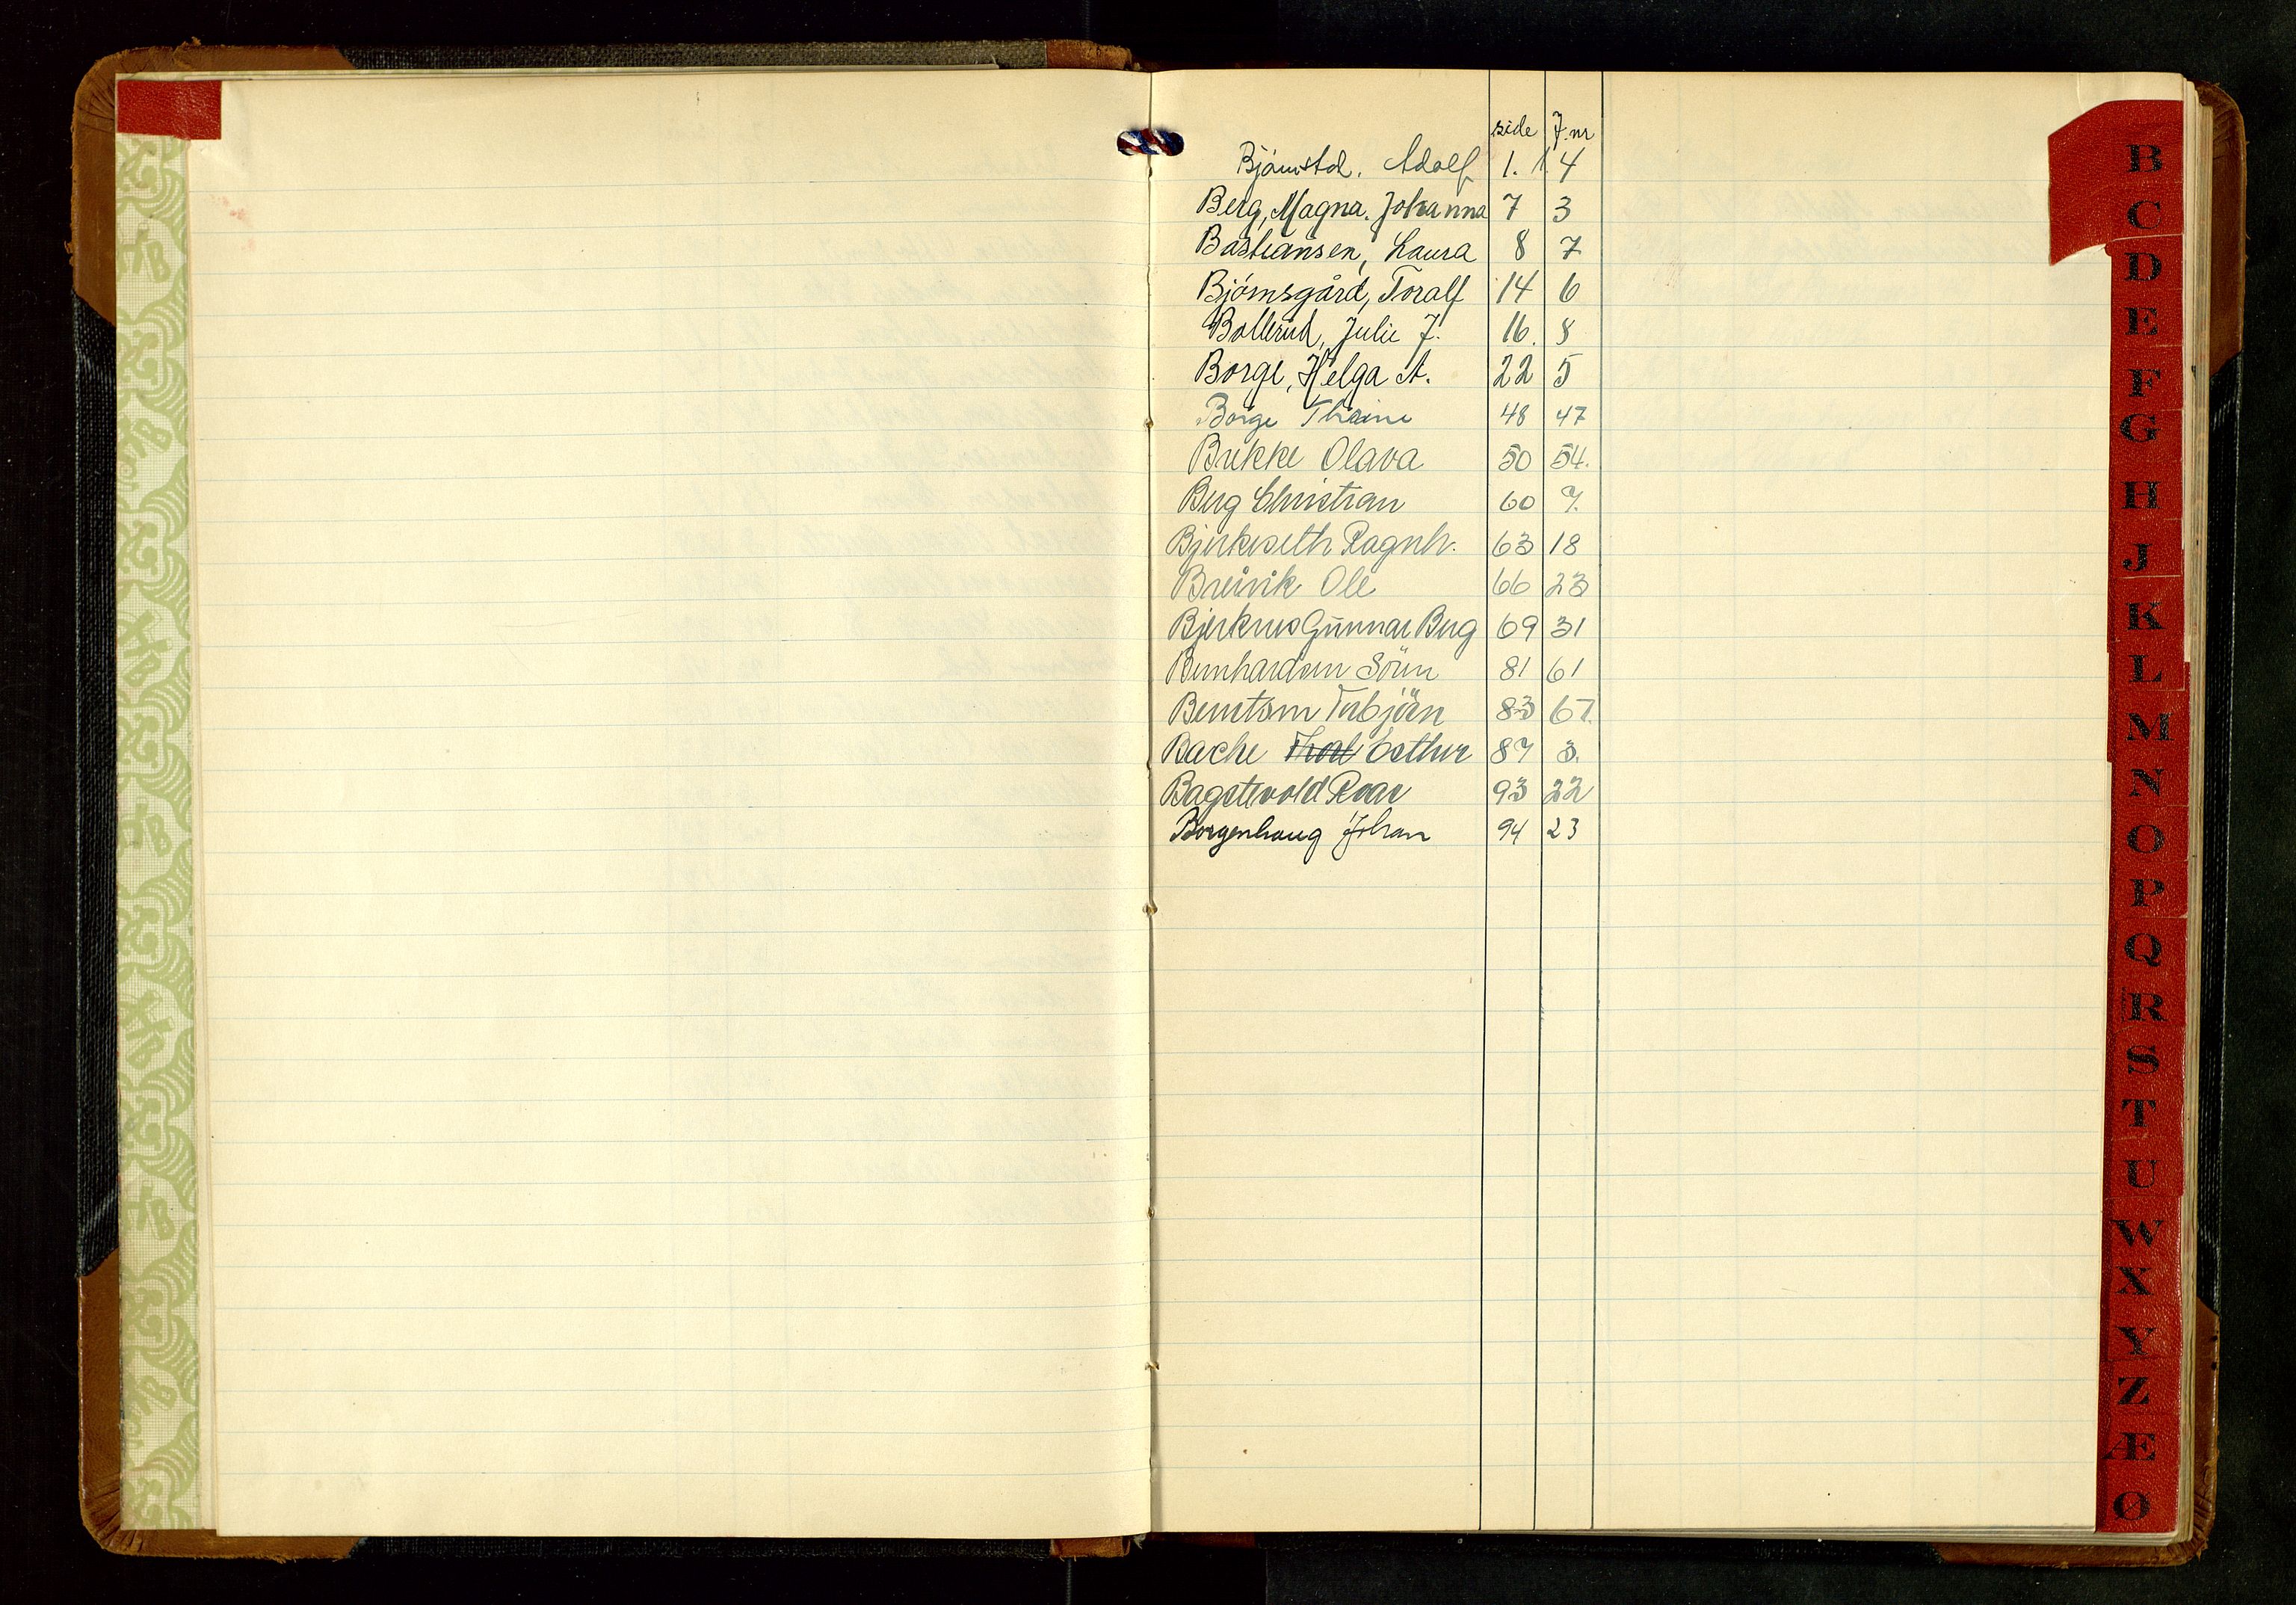 side J.nr
Bjørnstd. Adolf 1. 1.4
Berg, Magna. Johanna 7 3
Bastiansen, Laura 8 7
Bjørnsgård, Toralf 14 6
Bollerud, Julie J. 16. 8
Borge, Helga A. 22 5
Borge 48 47
Brekke Olava 50 54.
Berg Christian 60 7.
Bjerkeseth Ragnh. 63 18
Breivik Ole 66 23
Bjerknes Gunnar Berg 69 31
Bernhardsen Sören 81 61
Berntsen Torbjörn 83 67.
Bache Thod Esther 87 3.
Bagstevold Roar 93 22
Borgenhaug Johan 94 23
B
C
D
E
F
G
H
J
K
L
M
N
O
P
Q
R
S
T
U
W
X
Y
Z
Æ
Ø